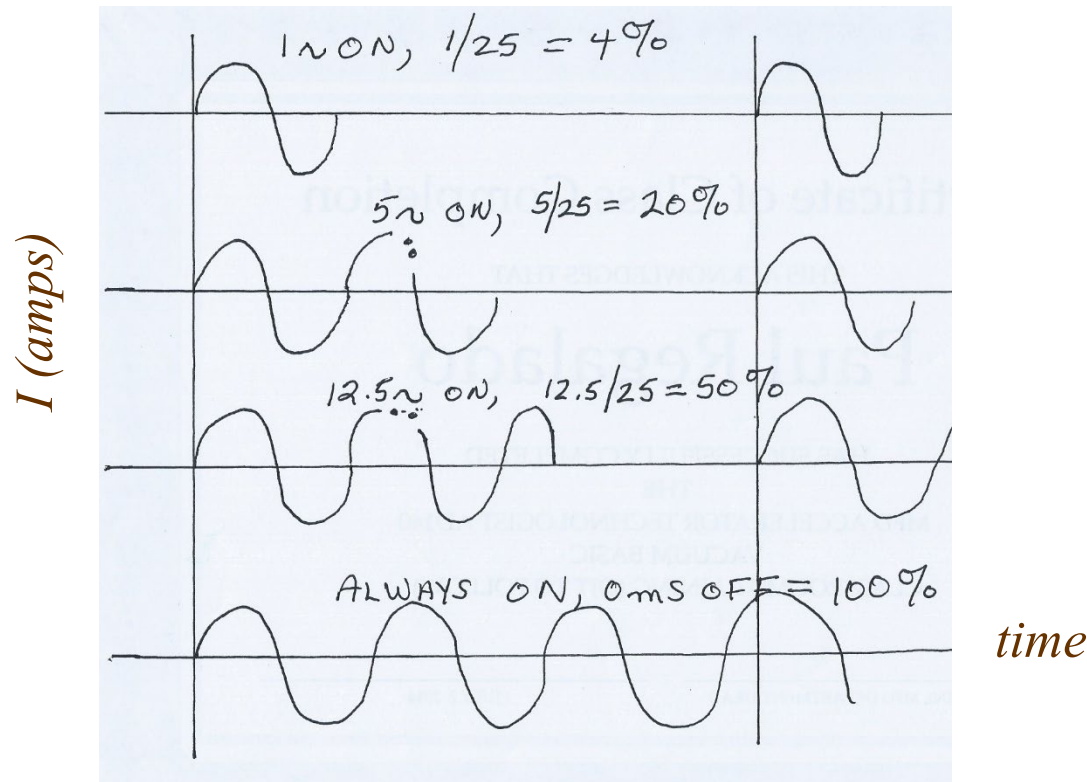 1~ ON, 1/25 = 4%
5~ ON, 5/25 = 20%
I (amps)
12.5~ ON, 12.5/25 = 50%
ALWAYS ON, 0 mS OFF = 100%
time